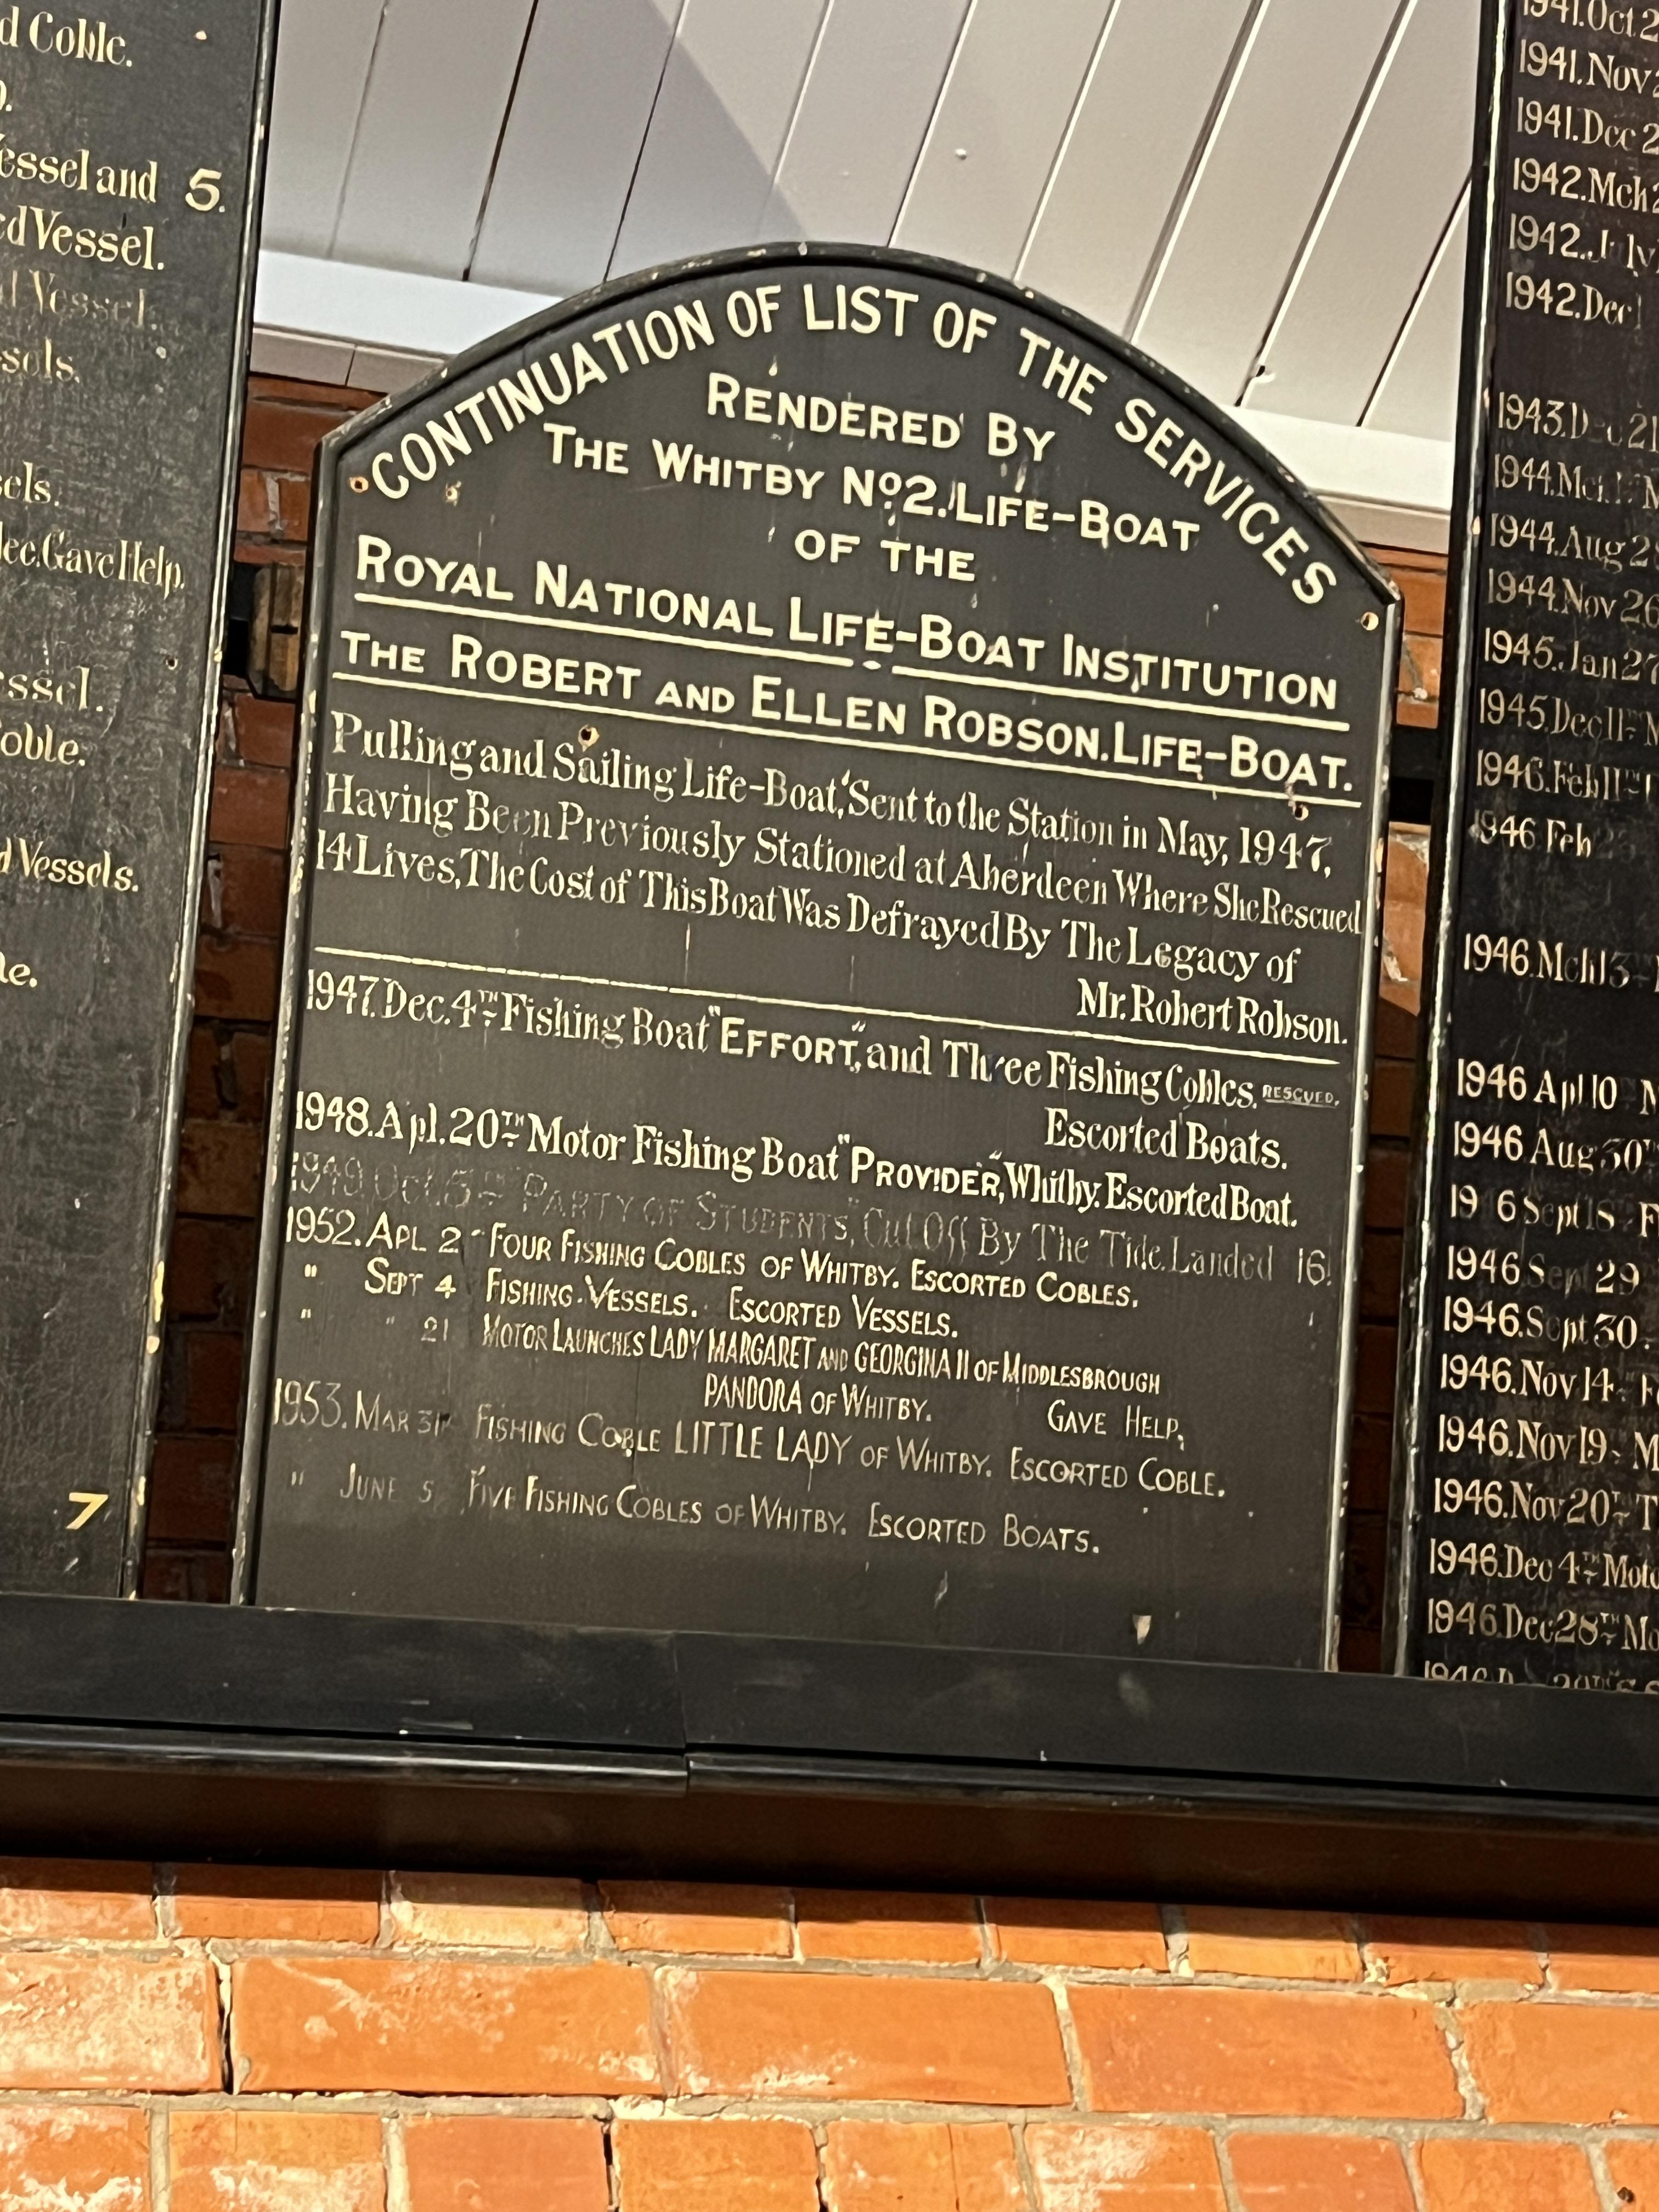 d Coble.
essel and 5.
ed Vessel.
d Vessel.
sels.
sels.
ec. Gave Help.
ssel.
oble.
d Vessels.
le.
7
CONTINUATION OF LIST OF THE SERVICES
RENDERED BY
THE WHITBY No2. LIFE-BOAT
OF THE
ROYAL NATIONAL LIFE-BOAT INSTITUTION
THE ROBERT AND ELLEN ROBSON. LIFE-BOAT.
Pulling and Sailing Life-Boat, Sent to the Station in May, 1947,
Having Been Previously Stationed at Aberdeen Where She Rescued
14 Lives, The Cost of This Boat Was Defrayed By The Legacy of
Mr. Robert Robson.
1947. Dec. 4TH Fishing Boat "EFFORT", and Three Fishing Cobles. RESCUED.
Escorted Boats.
1948. Apl. 20TH Motor Fishing Boat "PROVIDER", Whitby. Escorted Boat.
1949. Oct. "PARTY OF STUDENTS", Cut Off By The Tide. Landed 16.
1952. APL 2 FOUR FISHING COBLES OF WHITBY. ESCORTED COBLES.
" SEPT 4 FISHING VESSELS. ESCORTED VESSELS.
" " 21 MOTOR LAUNCHES LADY MARGARET AND GEORGINA II OF MIDDLESBROUGH
PANDORA OF WHITBY. GAVE HELP.
1953. MAR 31 FISHING COBLE LITTLE LADY OF WHITBY. ESCORTED COBLE.
" JUNE 5 FIVE FISHING COBLES OF WHITBY. ESCORTED BOATS.
1941. Oct 2
1941. Nov 2
1941. Dec 2
1942. Mch 2
1942. July
1942. Dec 1
1943. Dec 21
1944. Mch
1944. Aug 2
1944. Nov 26
1945. Jan 27
1945. Dec 11TH M
1946. Feb 11TH
1946 Feb
1946. Mch 13
1946 Apl 10 M
1946 Aug 30TH
1946 Sept 18 F
1946 Sept 29
1946. Sept 30
1946. Nov 14 F
1946. Nov 19 M
1946. Nov 20TH T
1946. Dec 4TH Moto
1946. Dec 28TH Mo